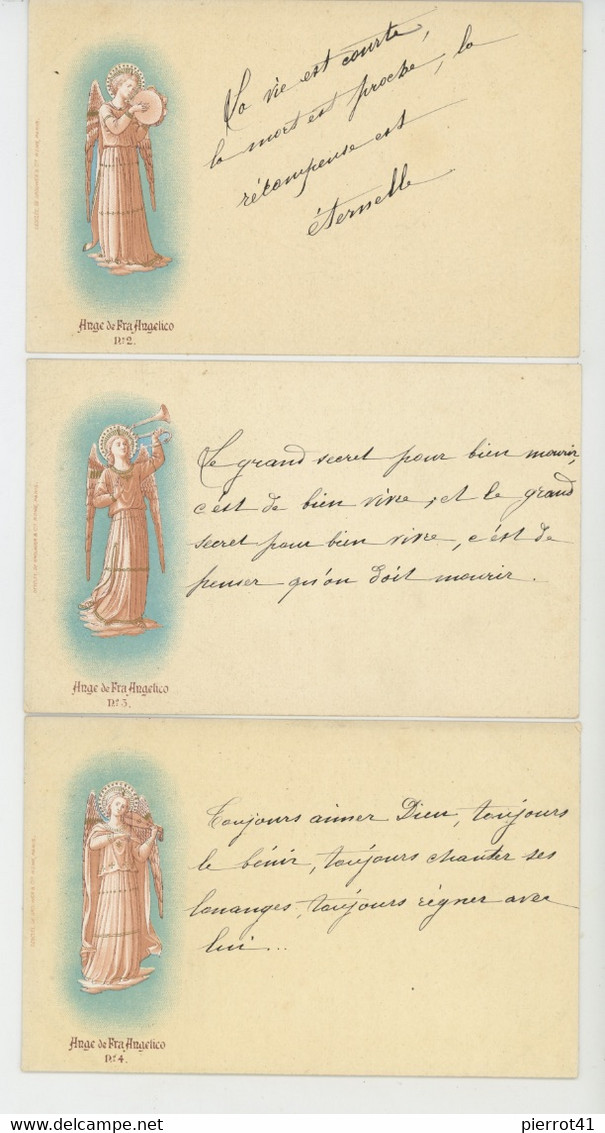 La vie est courte,
la mort est proche, la
récompense est
éternelle
Ange de Fra Angelico
No 2.
Le grand secret pour bien mourir,
c'est de bien vivre, et le grand
secret pour bien vivre, c'est de
penser qu'on doit mourir.
Ange de Fra Angelico
No 3.
Toujours aimer Dieu, toujours
le bénir, toujours chanter ses
louanges, toujours régner avec
lui...
Ange de Fra Angelico
No 4.
pierrot41